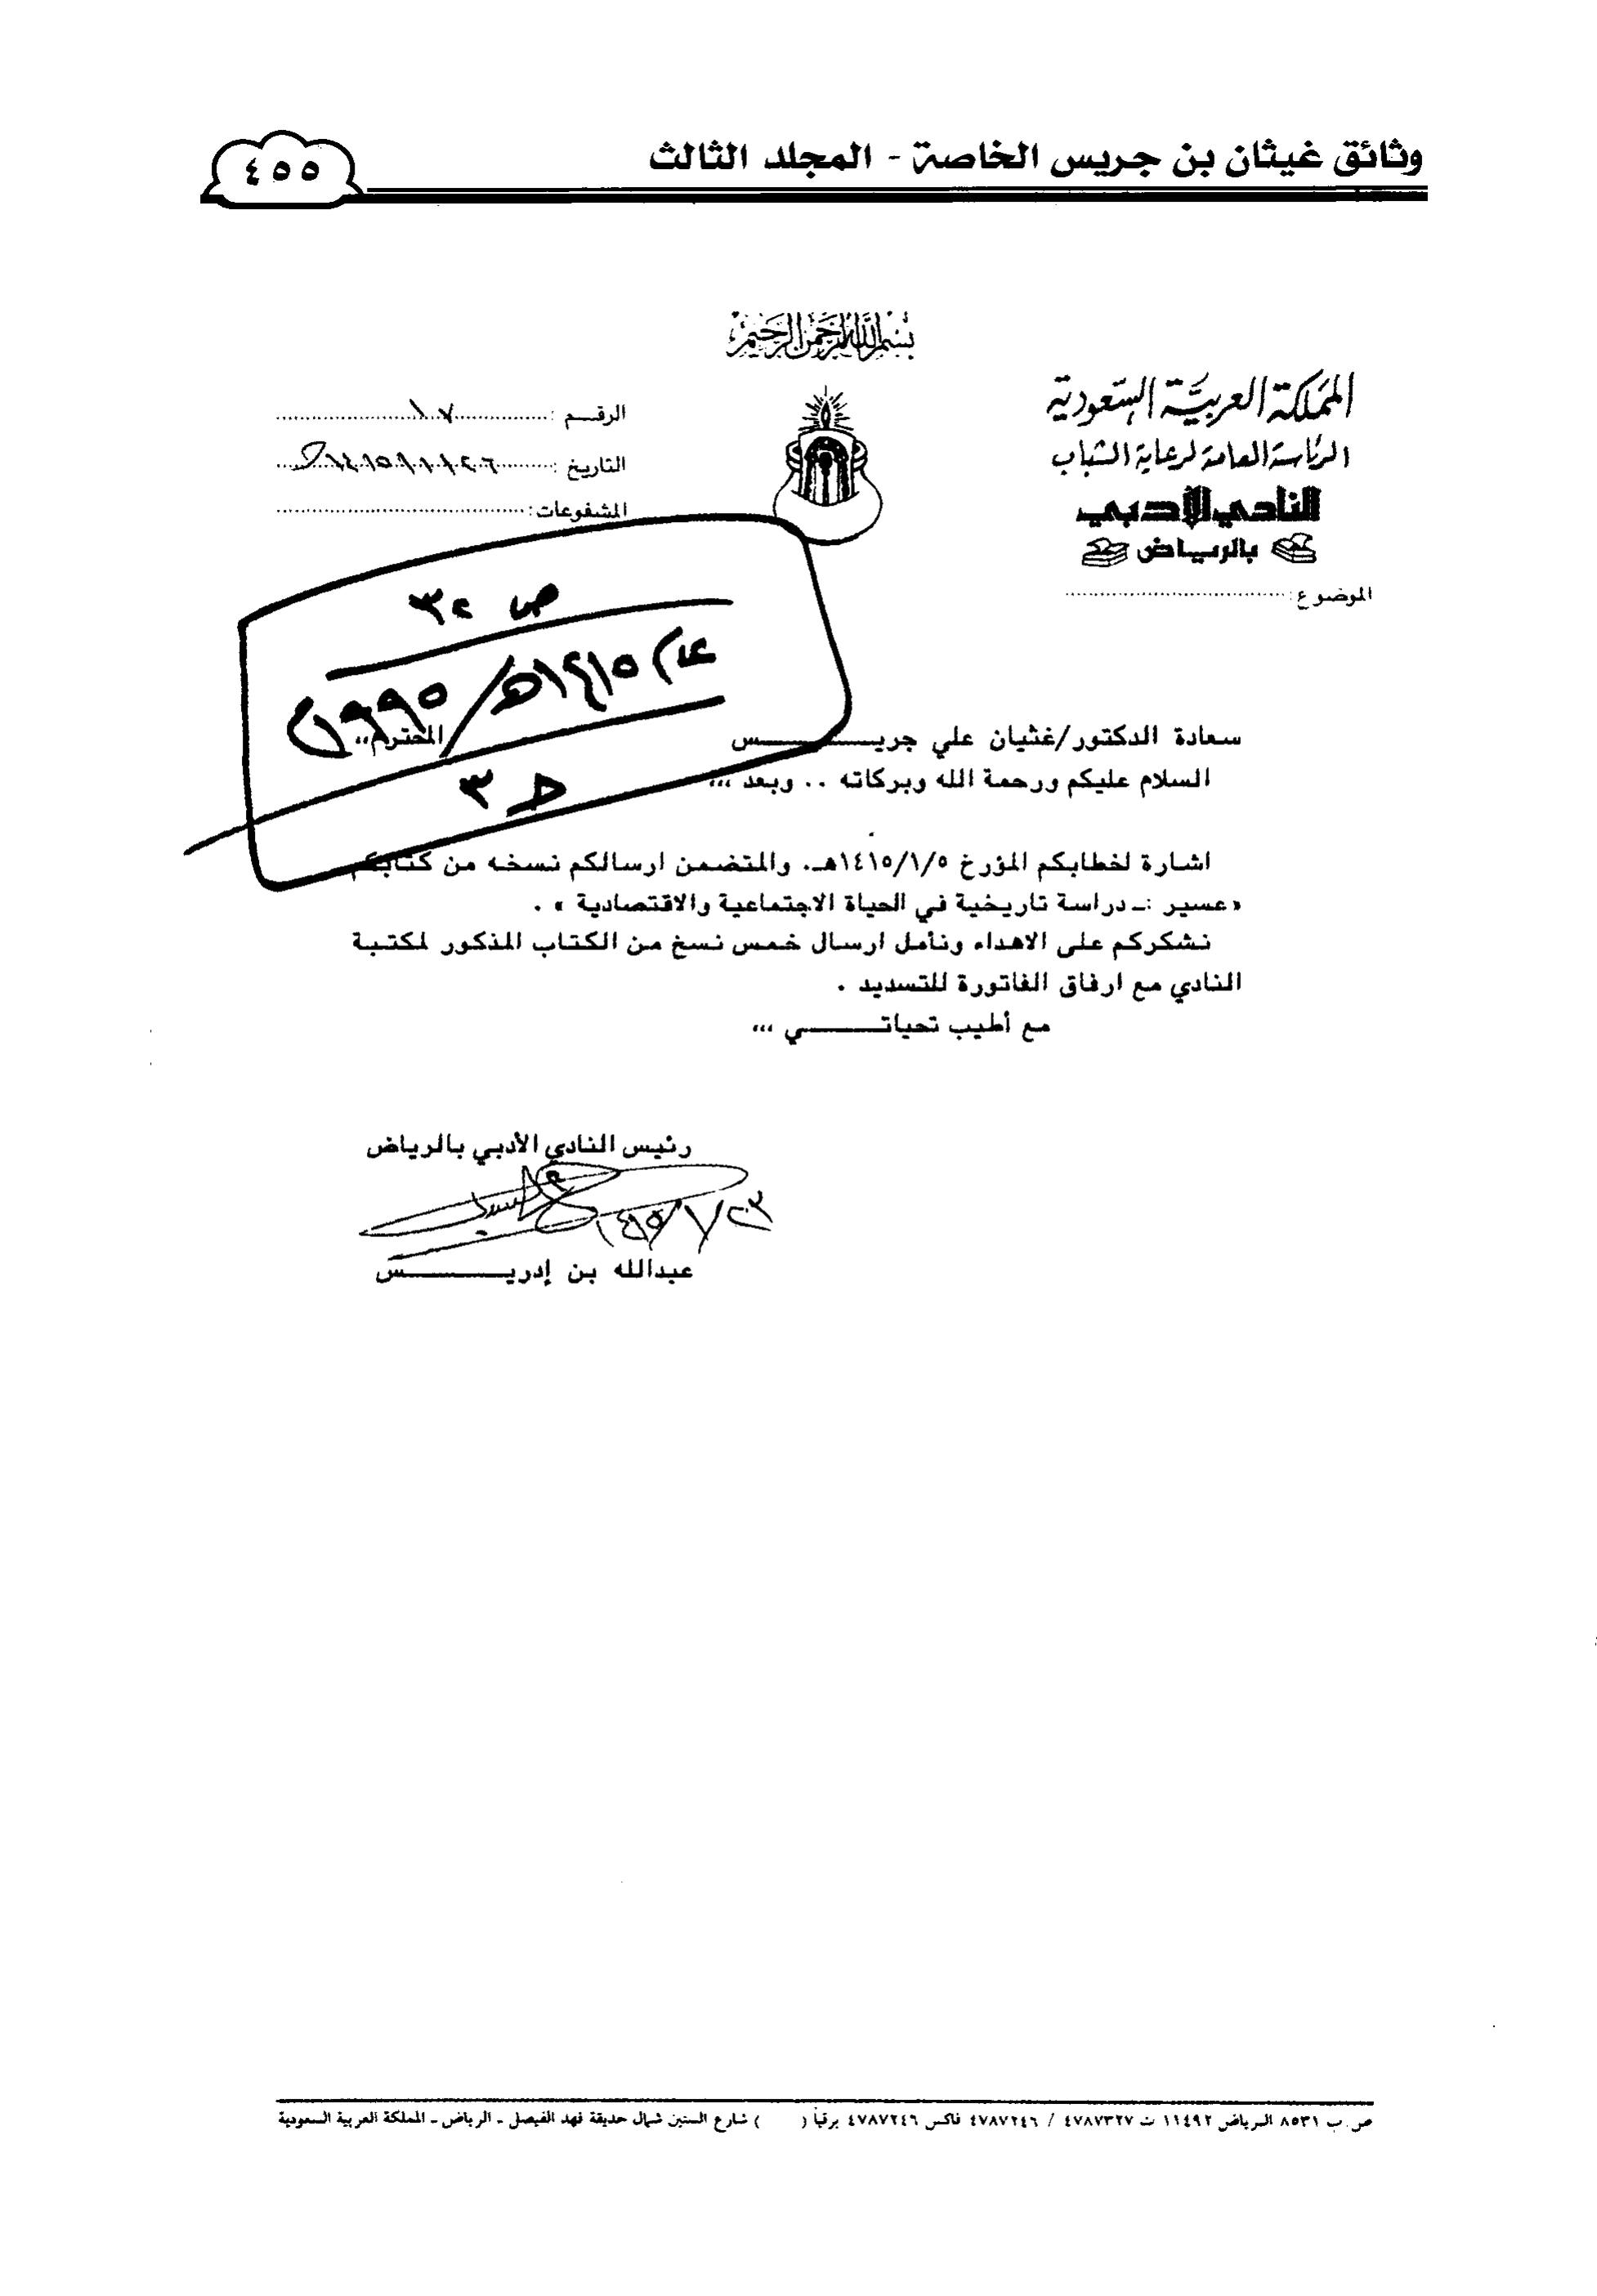 وثائق غيثان بن جريس الخاصة - المجلد الثالث
٤٥٥
بسم الله الرحمن الرحيم
المملكة العربية السعودية
الرئاسة العامة لرعاية الشباب
النادي الأدبي
بالرياض
الموضوع :
الرقـــم : ١٠٧
التاريخ :
المشفوعات :
ص ٣٢
عام ١٤١٥هـ/١٩٩٥م
ج ٣
سعادة الدكتور/غثيان علي جريـــــــــس المحترم،،
السلام عليكم ورحمة الله وبركاته .. وبعد ،،،
اشارة لخطابكم المؤرخ ١٤١٥/١/٥هـ. والمتضمن ارسالكم نسخه من كتابكم
«عسير :ـ دراسة تاريخية في الحياة الاجتماعية والاقتصادية» .
نشكركم على الاهداء ونأمل ارسال خمس نسخ من الكتاب المذكور لمكتبة
النادي مع ارفاق الفاتورة للتسديد .
مع أطيب تحياتـــــــــي ،،،
رئيس النادي الأدبي بالرياض
عبدالله بن إدريـــــــــس
ص.ب ٨٥٣١ الرياض ١١٤٩٢ ت ٤٧٨٧٣٢٧ / ٤٧٨٧٢٤٦ فاكس ٤٧٨٧٢٤٦ برقياً ( ) شارع الستين شمال حديقة فهد الفيصل ـ الرياض ـ المملكة العربية السعودية